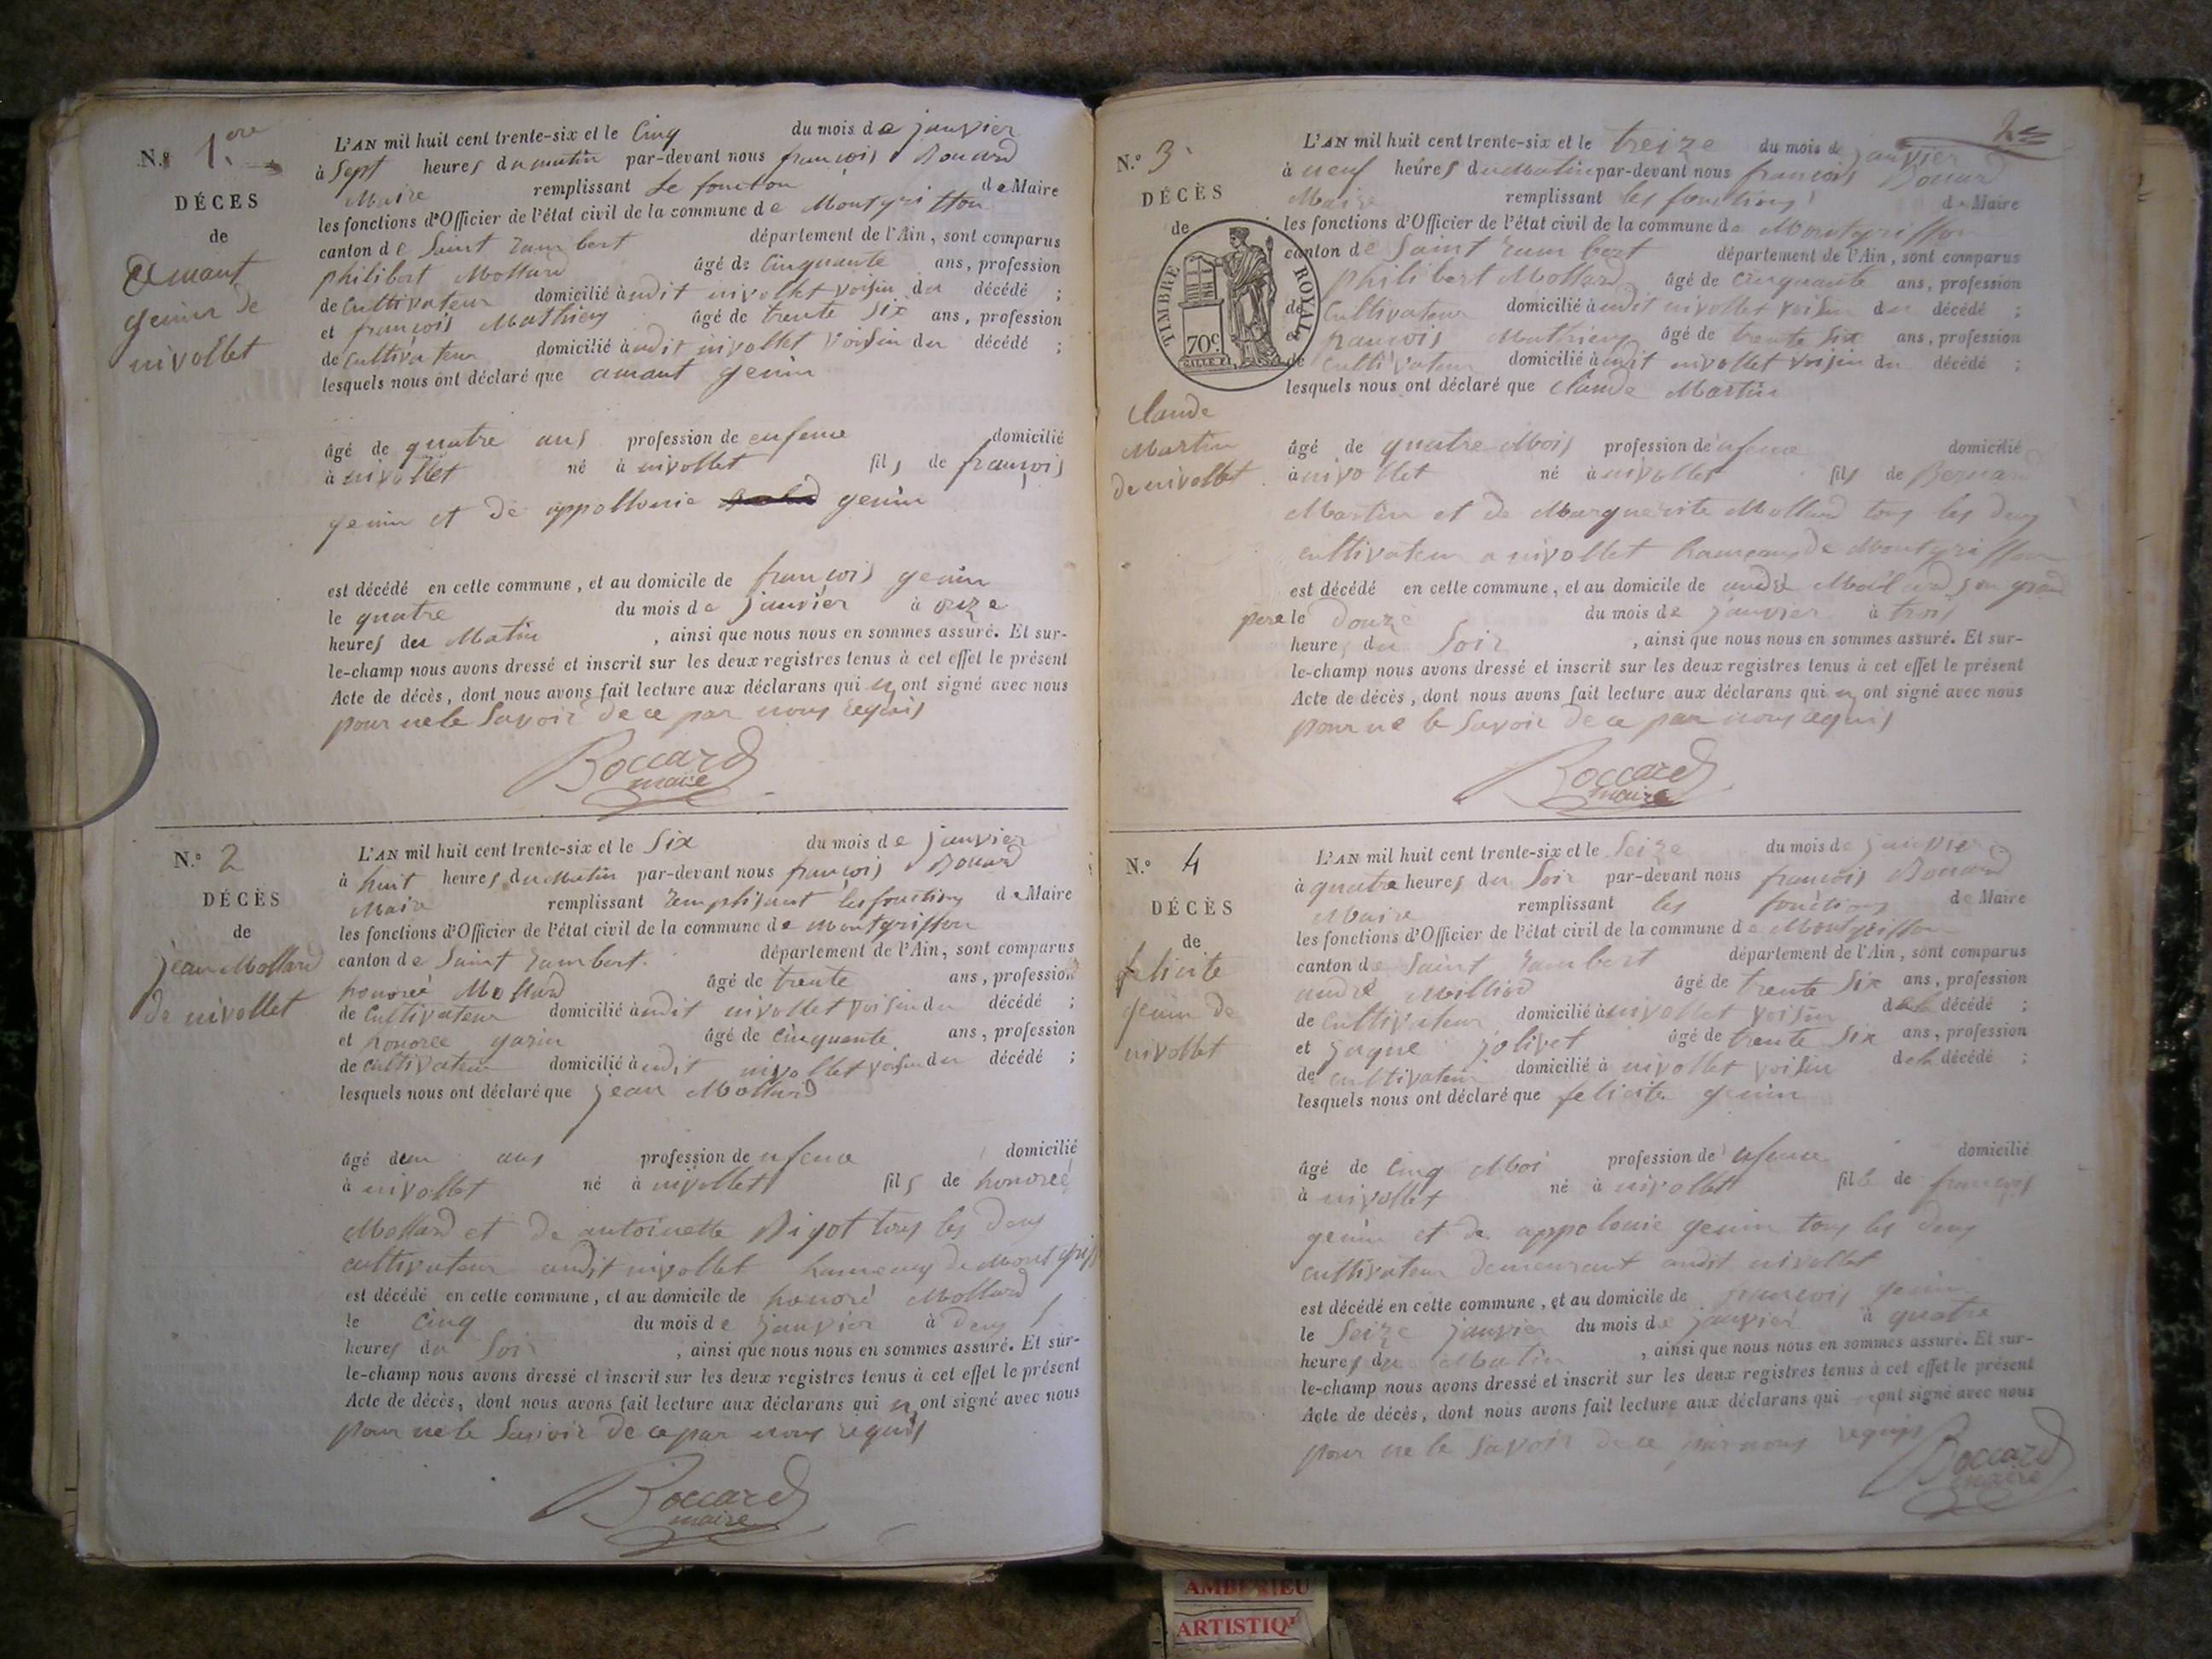 N.º 1.ere
DÉCES
de
amant
genin de
nivollet
L'AN mil huit cent trente-six et le Cinq du mois de janvier
à Sept heures du matin par-devant nous françois Bouard
Maire remplissant Le fonction de Maire
les fonctions d'Officier de l'état civil de la commune de Montgriffon
canton de Saint rambert département de l'Ain, sont comparus
philibert Mollard âgé de Cinquante ans, profession
de Cultivateur domicilié à audit nivollet voisin du décédé ;
et françois Mathieu âgé de trente Six ans, profession
de Cultivateur domicilié à audit nivollet voisin du décédé ;
lesquels nous ont déclaré que amant genin
âgé de quatre ans profession de enfence domicilié
à nivollet né à nivollet fils de françois
genin et de appollonie genin
est décédé en cette commune, et au domicile de françois genin
le quatre du mois de janvier à onze
heures du Matin , ainsi que nous nous en sommes assuré. Et sur-
le-champ nous avons dressé et inscrit sur les deux registres tenus à cet effet le présent
Acte de décès, dont nous avons fait lecture aux déclarans qui n ont signé avec nous
pour ne le Savoir de ce par nous requis
Boccard
maire
N.º 2
DÉCÈS
de
jean Mollard
de nivollet
L'AN mil huit cent trente-six et le Six du mois de janvier
à huit heures du Matin par-devant nous françois Bouard
Maire remplissant remplisant les fonctions de Maire
les fonctions d'Officier de l'état civil de la commune de Montgriffon
canton de Saint rambert. département de l'Ain, sont comparus
honoreé Mollard âgé de trente ans, profession
de Cultivateur domicilié à audit nivollet voisin du décédé ;
et honoree garin âgé de Cinquante ans, profession
de Cultivateur domicilié à audit nivollet voisin du décédé ;
lesquels nous ont déclaré que jean Mollard
âgé de un ans profession de enfence domicilié
à nivollet né à nivollet fils de honoreé
Mollard et de antoinette Bigot tous les deux
cultivateur audit nivollet hameaux de Montgriff
est décédé en cette commune, et au domicile de honoré Mollard
le Cinq du mois de janvier à deux
heures du Soir , ainsi que nous nous en sommes assuré. Et sur-
le-champ nous avons dressé et inscrit sur les deux registres tenus à cet effet le présent
Acte de décès, dont nous avons fait lecture aux déclarans qui n ont signé avec nous
pour ne le Savoir de ce par nous requis
Boccard
maire
2e
N.º 3
DÉCÈS
de
TIMBRE ROYAL
70c
Claude
Martin
de nivollet
L'AN mil huit cent trente-six et le treize du mois de janvier
à neuf heures du Matin par-devant nous françois Bouard
Maire remplissant les fonctions de Maire
les fonctions d'Officier de l'état civil de la commune de Montgriffon
canton de Saint rambert département de l'Ain, sont comparus
philibert Mollard âgé de Cinquante ans, profession
de Cultivateur domicilié à audit nivollet voisin du décédé ;
et françois Mathieu âgé de trente Six ans, profession
de Cultivateur domicilié à audit nivollet voisin du décédé ;
lesquels nous ont déclaré que Claude Martin
âgé de quatre Mois profession de enfence domicilié
à nivollet né à nivollet fils de Bernard
Martin et de Marguerite Mollard tous les deux
cultivateur a nivollet hameaux de Montgriffon
est décédé en cette commune, et au domicile de andré Mollard son grand
pere le douze du mois de janvier à trois
heures du Soir , ainsi que nous nous en sommes assuré. Et sur-
le-champ nous avons dressé et inscrit sur les deux registres tenus à cet effet le présent
Acte de décès, dont nous avons fait lecture aux déclarans qui n ont signé avec nous
pour ne le Savoir de ce par nous requis
Boccard
maire
N.º 4
DÉCÈS
de
felicite
genin de
nivollet
L'AN mil huit cent trente-six et le Seize du mois de janvier
à quatre heures du Soir par-devant nous françois Bouard
Maire remplissant les fonctions de Maire
les fonctions d'Officier de l'état civil de la commune de Montgriffon
canton de Saint rambert département de l'Ain, sont comparus
andré Milliod âgé de trente Six ans, profession
de Cultivateur domicilié à nivollet voisin de la décédé ;
et jaque jolivet âgé de trente Six ans, profession
de cultivateur domicilié à nivollet voisin de la décédé ;
lesquels nous ont déclaré que felicite genin
âgé de Cinq Mois profession de enfence domicilié
à nivollet né à nivollet fille de françois
genin et de appolonie genin tous les deux
cultivateur demeurant audit nivollet
est décédé en cette commune, et au domicile de françois genin
le Seize janvier du mois de janvier à quatre
heures du Matin , ainsi que nous nous en sommes assuré. Et sur-
le-champ nous avons dressé et inscrit sur les deux registres tenus à cet effet le présent
Acte de décès, dont nous avons fait lecture aux déclarans qui ont signé avec nous
pour ne le Savoir de ce par nous requis
Boccard
maire
AMBERIEU
ARTISTIQ